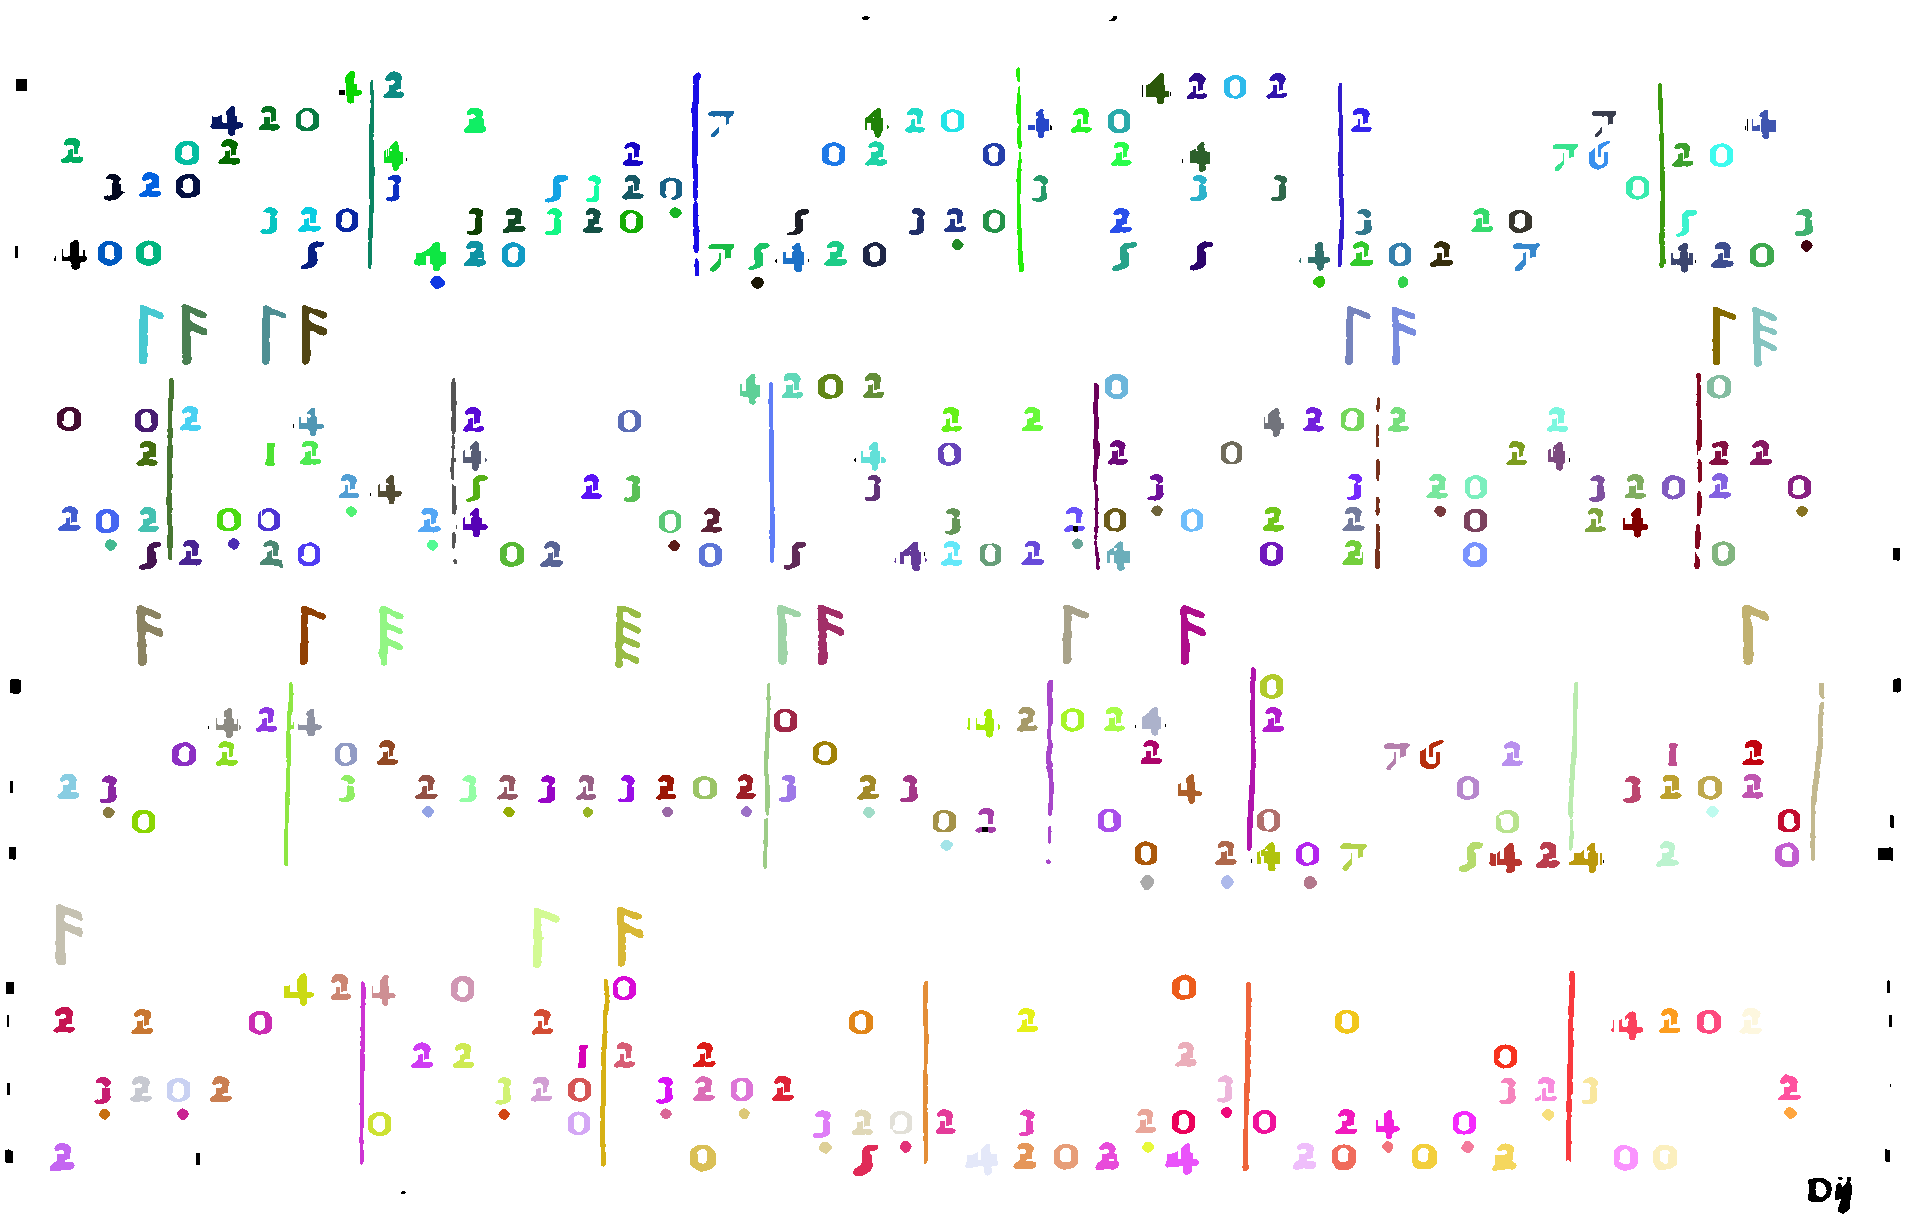 4 2 4 2 0 2
4 2 0 2 7 4 2 0 4 2 0 2 7 4
2 0 2 4 2 0 2 0 2 4 7 6 2 0
3 2 0 3 5 3 2 0 3 3 3 0
3 2 0 3 2 3 2 0 5 3 2 0 2 3 2 0 5 3
4 0 0 5 4 2 0 7 5 4 2 0 5 5 4 2 0 2 7 4 2 0
4 2 0 2 0
0 0 2 4 2 0 2 2 4 2 0 2 2
2 1 2 4 4 0 2 0 2 4 2 2
2 4 5 2 3 3 3 3 2 0 3 2 0 2 0
2 0 2 0 0 2 4 0 2 3 2 0 0 2 2 0 2 4
5 2 2 0 0 2 0 5 4 2 0 2 4 0 2 0 0
0
4 2 4 0 4 2 0 2 4 2
0 2 0 2 0 2 7 6 2 1 2
2 3 3 2 3 2 3 2 3 2 0 2 3 2 3 4 0 3 2 0 2
0 0 2 0 0 0 0
0 2 4 0 7 5 4 2 4 2 0
4 2 4 0 0 0
2 2 0 2 0 2 0 4 2 0 2
2 2 1 2 2 2 0
3 2 0 2 3 2 0 3 2 0 2 3 3 2 3 2
0 0 3 2 0 2 3 2 0 0 2 4 0
2 0 5 4 2 0 2 4 2 0 0 2 0 0
Dij